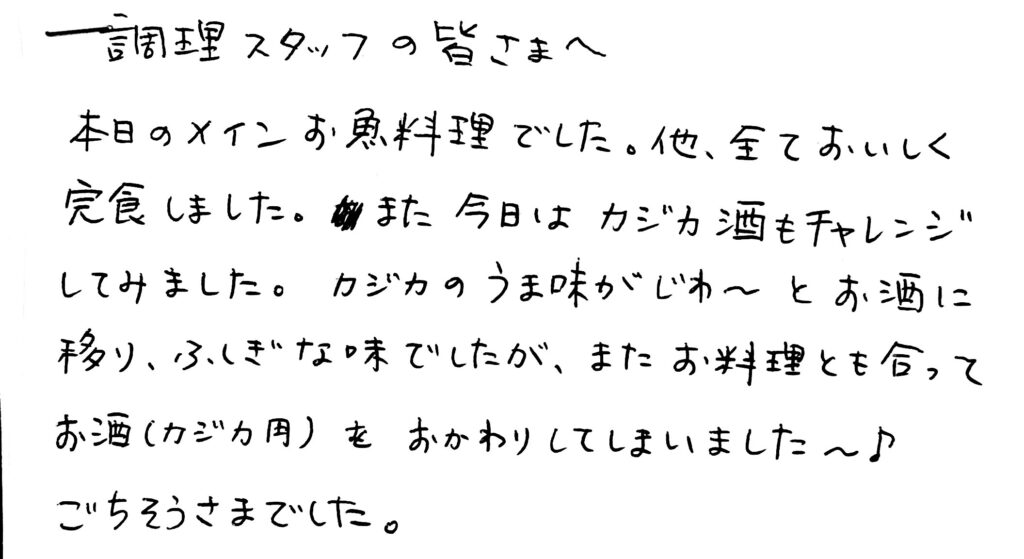 調理スタッフの皆さまへ
本日のメインお魚料理でした。他、全ておいしく
完食しました。また今日はカジカ酒もチャレンジ
してみました。カジカのうま味がじわ〜とお酒に
移り、ふしぎな味でしたが、またお料理とも合って
お酒(カジカ用)をおかわりしてしまいました〜♪
ごちそうさまでした。